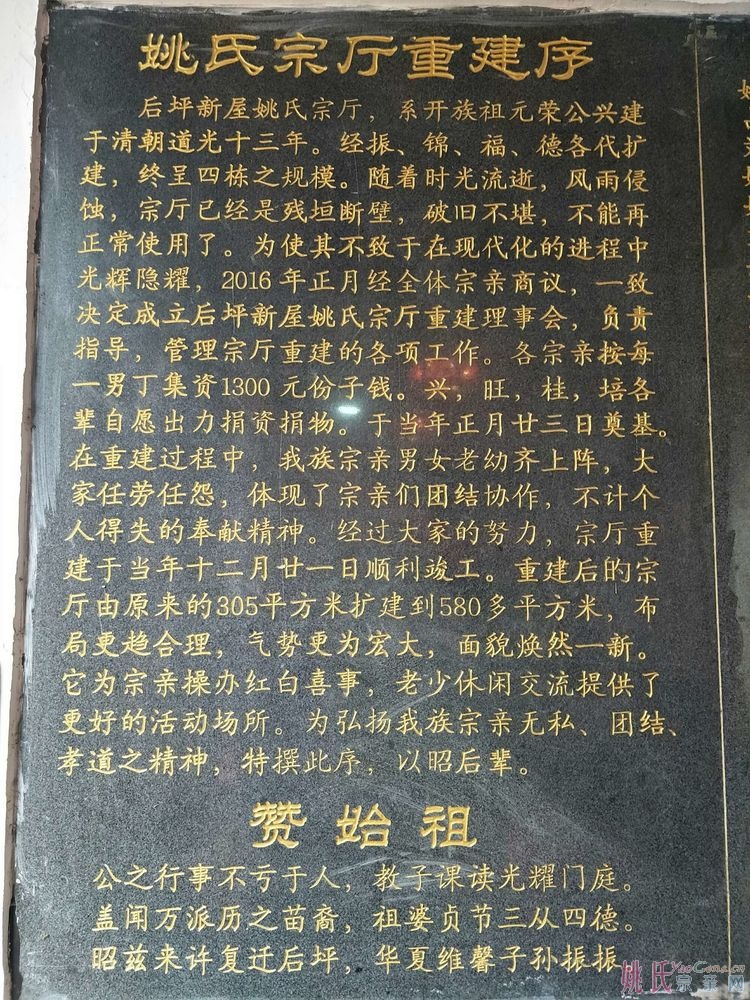 姚氏宗厅重建序
后坪新屋姚氏宗厅，系开族祖元荣公兴建
于清朝道光十三年。经振、锦、福、德各代扩
建，终呈四栋之规模。随着时光流逝，风雨侵
蚀，宗厅已经是残垣断壁，破旧不堪，不能再
正常使用了。为使其不致于在现代化的进程中
光辉隐耀，2016年正月经全体宗亲商议，一致
决定成立后坪新屋姚氏宗厅重建理事会，负责
指导，管理宗厅重建的各项工作。各宗亲按每
一男丁集资1300元份子钱。兴，旺，桂，培各
辈自愿出力捐资捐物。于当年正月廿三日奠基。
在重建过程中，我族宗亲男女老幼齐上阵，大
家任劳任怨，体现了宗亲们团结协作，不计个
人得失的奉献精神。经过大家的努力，宗厅重
建于当年十二月廿一日顺利竣工。重建后的宗
厅由原来的305平方米扩建到580多平方米，布
局更趋合理，气势更为宏大，面貌焕然一新。
它为宗亲操办红白喜事，老少休闲交流提供了
更好的活动场所。为弘扬我族宗亲无私、团结、
孝道之精神，特撰此序，以昭后辈。
赞始祖
公之行事不亏于人，教子课读光耀门庭。
盖闻万派历之苗裔，祖婆贞节三从四德。
昭兹来许复迁后坪，华夏维馨子孙振振
姚氏宗亲网
YaoGens.cn